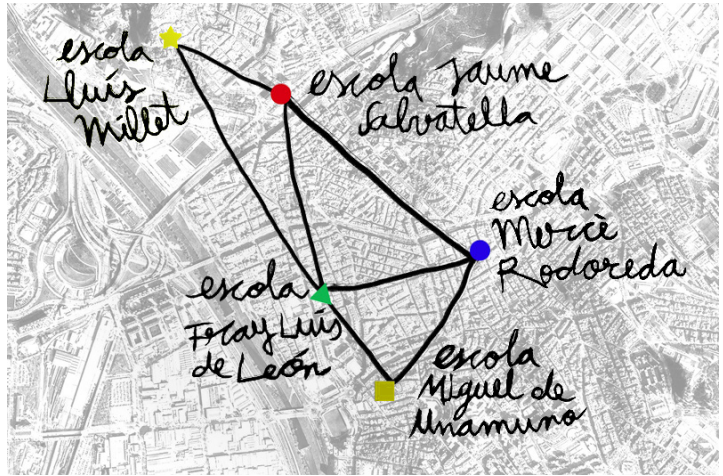 escola
Lluís
Millet
escola Jaume
Salvatella
escola
Mercè
Rodoreda
escola
Fray Luis
de León
escola
Miguel de
Unamuno